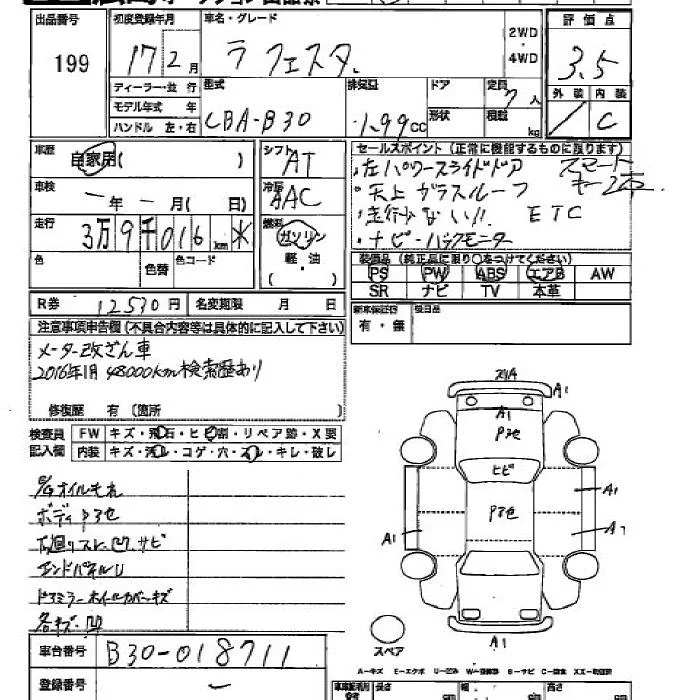 出品番号 初度登録年月 車名・グレード 評価点
199 17 2月 ラフェスタ 2WD・4WD 3.5
ディーラー・並行 型式 排気量 ドア 定員 7人 外装 内装
モデル年式 年 CBA-B30 1.99cc 形状 積載 kg C
ハンドル 左・右
車歴 自家用( ) シフト AT セールスポイント(正常に機能するものに限ります)
・左パワースライドドア スマート
車検 一年一月( 日) 冷房 AAC ・天上ガラスルーフ キー2本
・走行少ない!! ETC
走行 3万9千016km 燃料 ガソリン ・ナビ・バックモニター
色 色替 色コード 軽・油
( )
装備品(純正品に限り○をつけてください)
PS PW ABS エアB AW
SR ナビ TV 本革
R券 12530円 名変期限 月 日 新車保証書 有・無
注意事項申告欄(不具合内容等は具体的に記入して下さい)
メーター改ざん車
2016年1月 48000km検索歴あり
修復歴 有(箇所
検査員 FW キズ・飛石・ヒビ割・リペア跡・X要
記入欄 内装 キズ・汚レ・コゲ・穴・スレ・キレ・破レ
E/Gオイルモレ
ボディP3色
下廻りスレ、凹、サビ
エンドパネルU
ドアミラーホイールカバーキズ
各キズ・凹
A1
A1
P3色
ヒビ
P3色
A1
A1
A1
スペア
A-キズ E-エクボ U-凹み S-サビ C-腐食
車台番号 B30-018711
登録番号 ー
長さ 幅 高さ